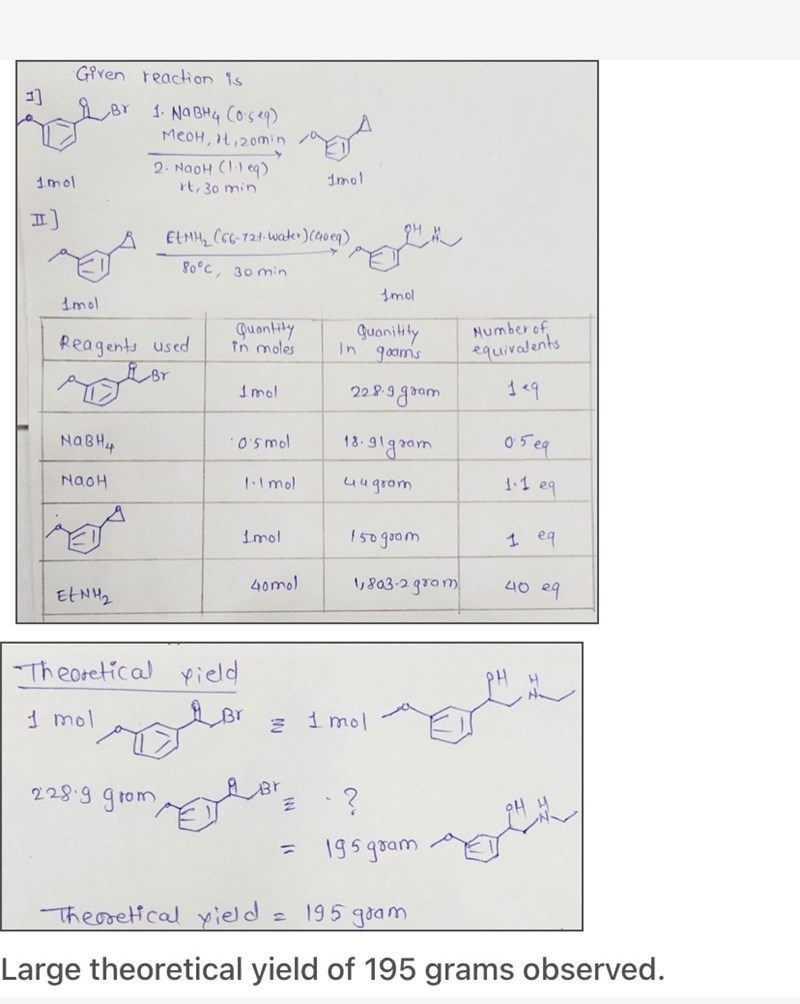 Given reaction is
I]
Br 1. NaBH4 (0.5 eq)
MeOH, rt, 20 min
2. NaOH (1.1 eq)
rt, 30 min
1 mol 1 mol
II]
EtNH2 (66-72% water) (40 eq) OH H N
80°C, 30 min
1 mol 1 mol
Reagents used Quantity in moles Quanitity in grams Number of equivalents
Br 1 mol 228.9 gram 1 eq
NaBH4 0.5 mol 18.91 gram 0.5 eq
NaOH 1.1 mol 44 gram 1.1 eq
1 mol 150 gram 1 eq
EtNH2 40 mol 1,803.2 gram 40 eq
Theoretical yield
1 mol Br ≡ 1 mol OH H N
228.9 gram Br ≡ ?
= 195 gram OH H N
Theoretical yield = 195 gram
Large theoretical yield of 195 grams observed.